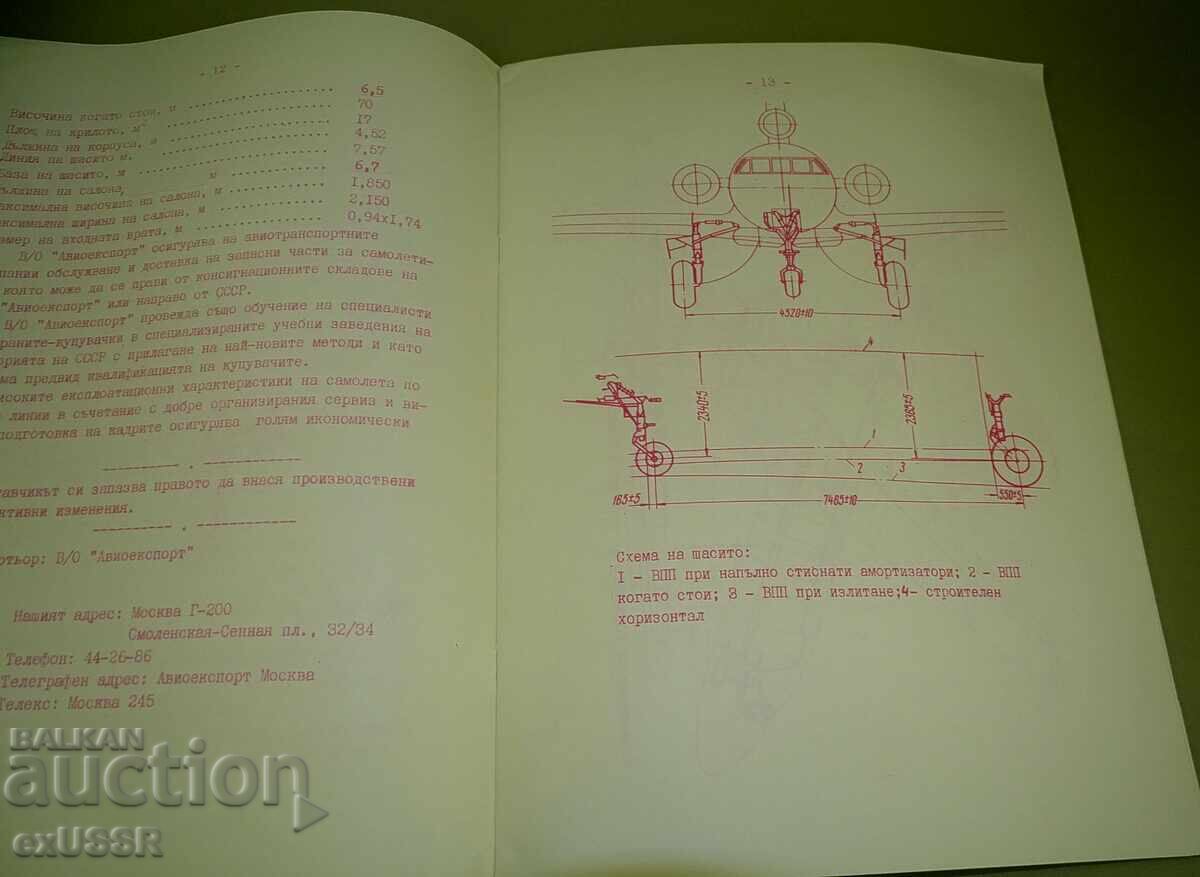 - 12 -
Височина когато стои, м ........................ 6,5
Площ на крилото, м² ........................ 70
Дължина на корпуса, м ........................ 17
Линия на шасито м. ........................ 4,52
База на шасито, м ........................ 7,57
ължина на салона, м ........................ 6,7
аксимална височина на салона, м ........................ 1,850
аксимална ширина на салона, м ........................ 2,150
змер на входната врата, м ........................ 0,94x1,74
В/О "Авиоекспорт" осигурява на авиотранспортните
пании обслужване и доставка на запасни части за самолети-
които може да се прави от консигнационните складове на
"Авиоекспорт" или направо от СССР.
В/О "Авиоекспорт" провежда също обучение на специалисти
раните-купувачки в специализираните учебни заведения на
орията на СССР с прилагане на най-новите методи и като
ма предвид квалификацията на купувачите.
исоките експлоатационни характеристики на самолета по
линии в съчетание с добре организирания сервиз и ви-
подготовка на кадрите осигурява голям икономически
тавчикът си запазва правото да внася производствени
ктивни изменения.
ртьор: В/О "Авиоекспорт"
Нашият адрес: Москва Г-200
Смоленская-Сенная пл., 32/34
Телефон: 44-26-86
Телеграфен адрес: Авиоекспорт Москва
Телекс: Москва 245
- 13 -
4520±10
4
2340±5
2365±5
1
2
3
165±5
7465±10
550±5
Схема на шасито:
1 - ВПП при напълно стиснати амортизатори; 2 - ВПП
когато стои; 3 - ВПП при излитане;4- строителен
хоризонтал
BALKAN
auction
exUSSR